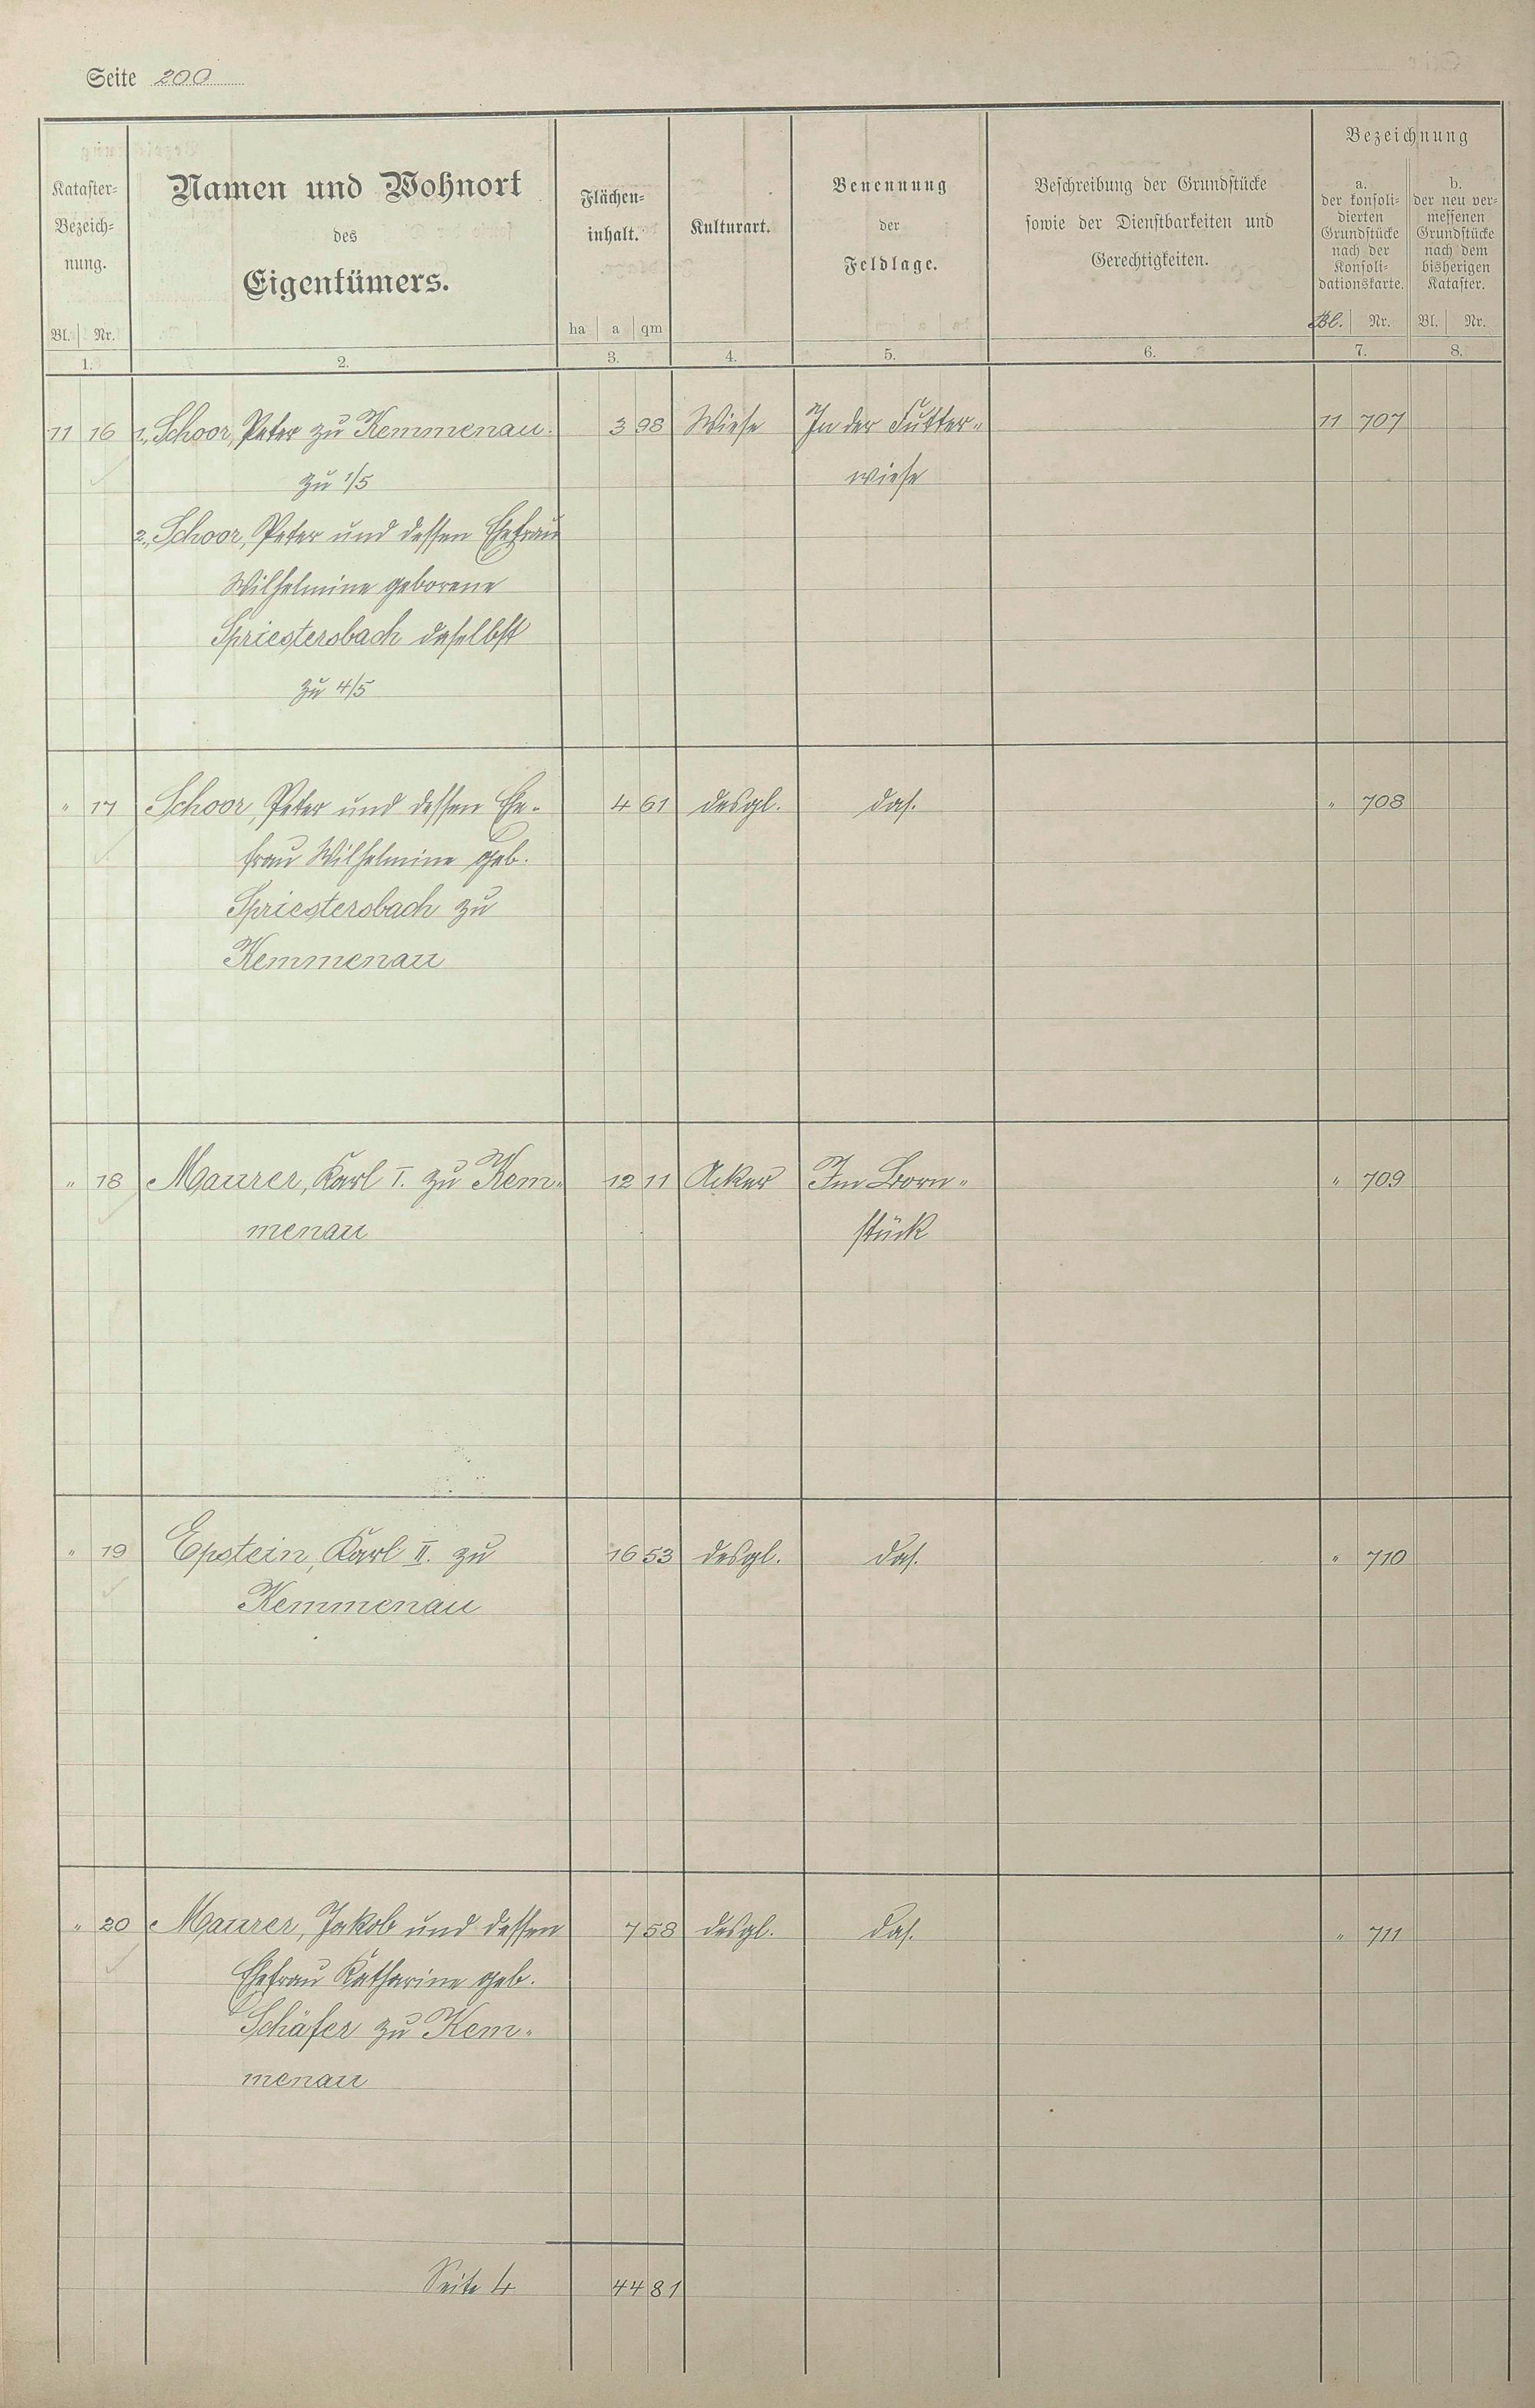 Seite 200
Kataster-
Bezeich-
nung.
Bl. Nr.
1.
Namen und Wohnort
des
Eigentümers.
2.
Flächen-
inhalt.
ha a qm
3.
Kulturart.
4.
Benennung
der
Feldlage.
5.
Beschreibung der Grundstücke
sowie der Dienstbarkeiten und
Gerechtigkeiten.
6.
Bezeichnung
a.
der konsoli-
dierten
Grundstücke
nach der
Konsoli-
dationskarte.
Bl. Nr.
7.
b.
der neu ver-
messenen
Grundstücke
nach dem
bisherigen
Kataster.
Bl. Nr.
8.
11 16 1., Schoor, Peter zu Kemmenau. 3 98 Wiese In der Futter- 11 707
zu 1/5 wiese
2., Schoor, Peter und dessen Ehefrau
Wilhelmine geborene
Spriestersbach daselbst
zu 4/5
" 17 Schoor, Peter und dessen Ehe- 4 61 desgl. das. " 708
frau Wilhelmine geb.
Spriestersbach zu
Kemmenau
" 18 Maurer, Karl I. zu Kem- 12 11 Acker Im Born- " 709
menau stück
" 19 Epstein, Karl II. zu 16 53 desgl. das. " 710
Kemmenau
" 20 Maurer, Jakob und dessen 7 58 desgl. das. " 711
Ehefrau Katharine geb.
Schäfer zu Kem-
menau
Seite 4 44 81